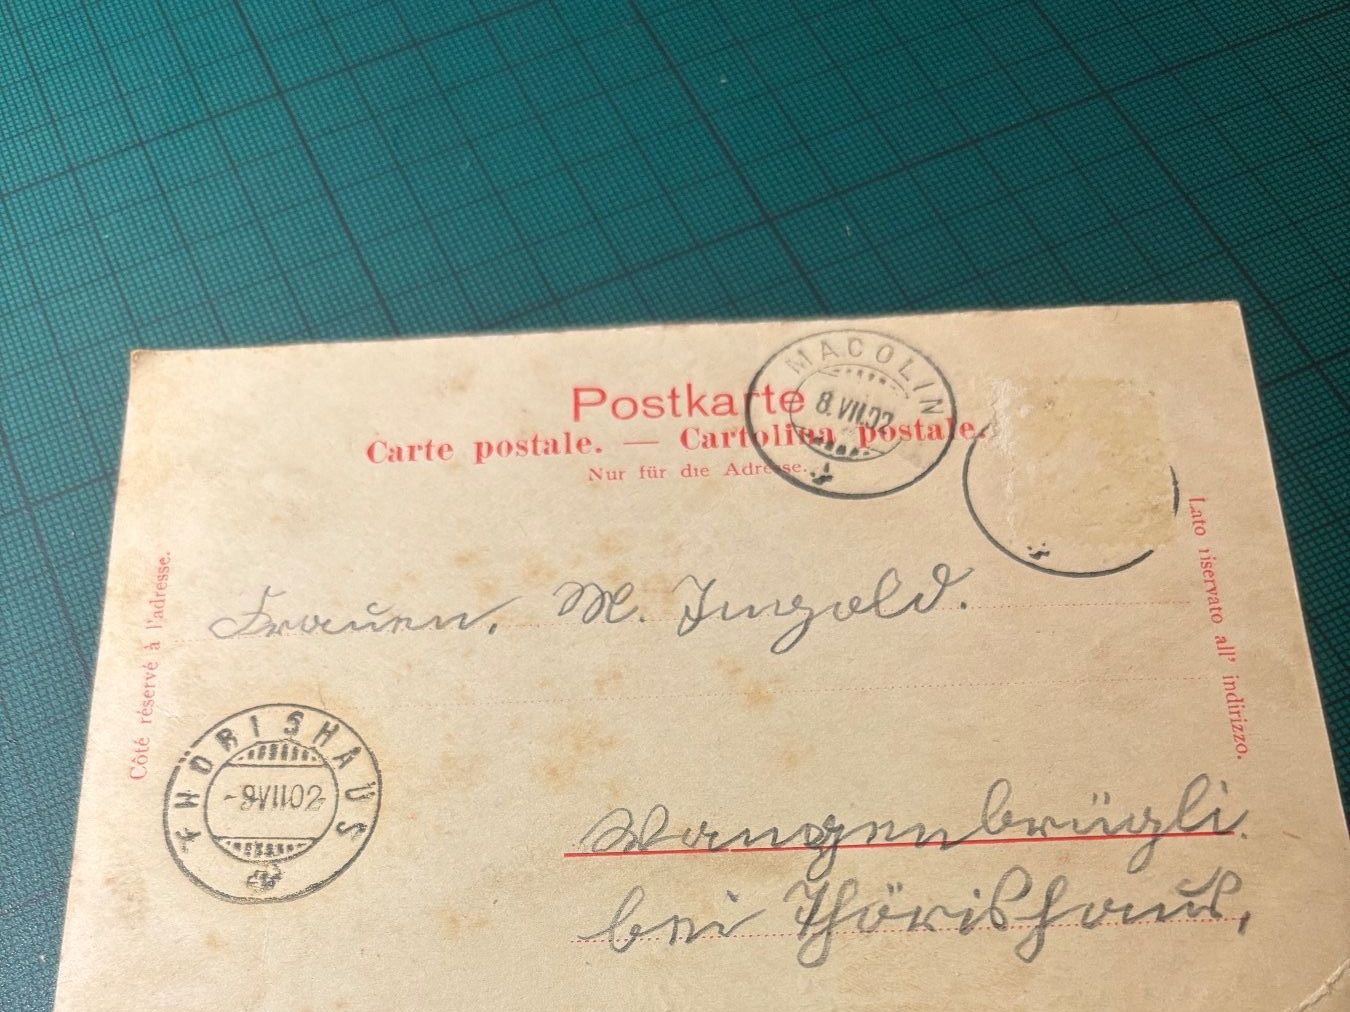 Postkarte
Carte postale. — Cartolina postale.
Nur für die Adresse.
MACOLIN
8.VII.02
Côté réservé à l'adresse.
Lato riservato all' indirizzo.
Frauen, M. Ingold.
THÖRISHAUS
-9.VII.02-
Wangenbrügli.
bei Thörishaus,